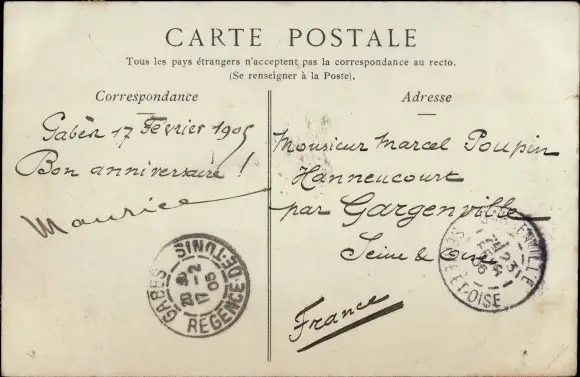 CARTE POSTALE
Tous les pays étrangers n'acceptent pas la correspondance au recto.
(Se renseigner à la Poste).
Correspondance
Adresse
Gabès 17 Février 1905
Bon anniversaire !
Maurice
Monsieur Marcel Poupin
Hanneucourt
par Gargenville
Seine & Oise
France
GABES
REGENCE-DE-TUNIS
17 -2
05
23
SEINE-ET-OISE